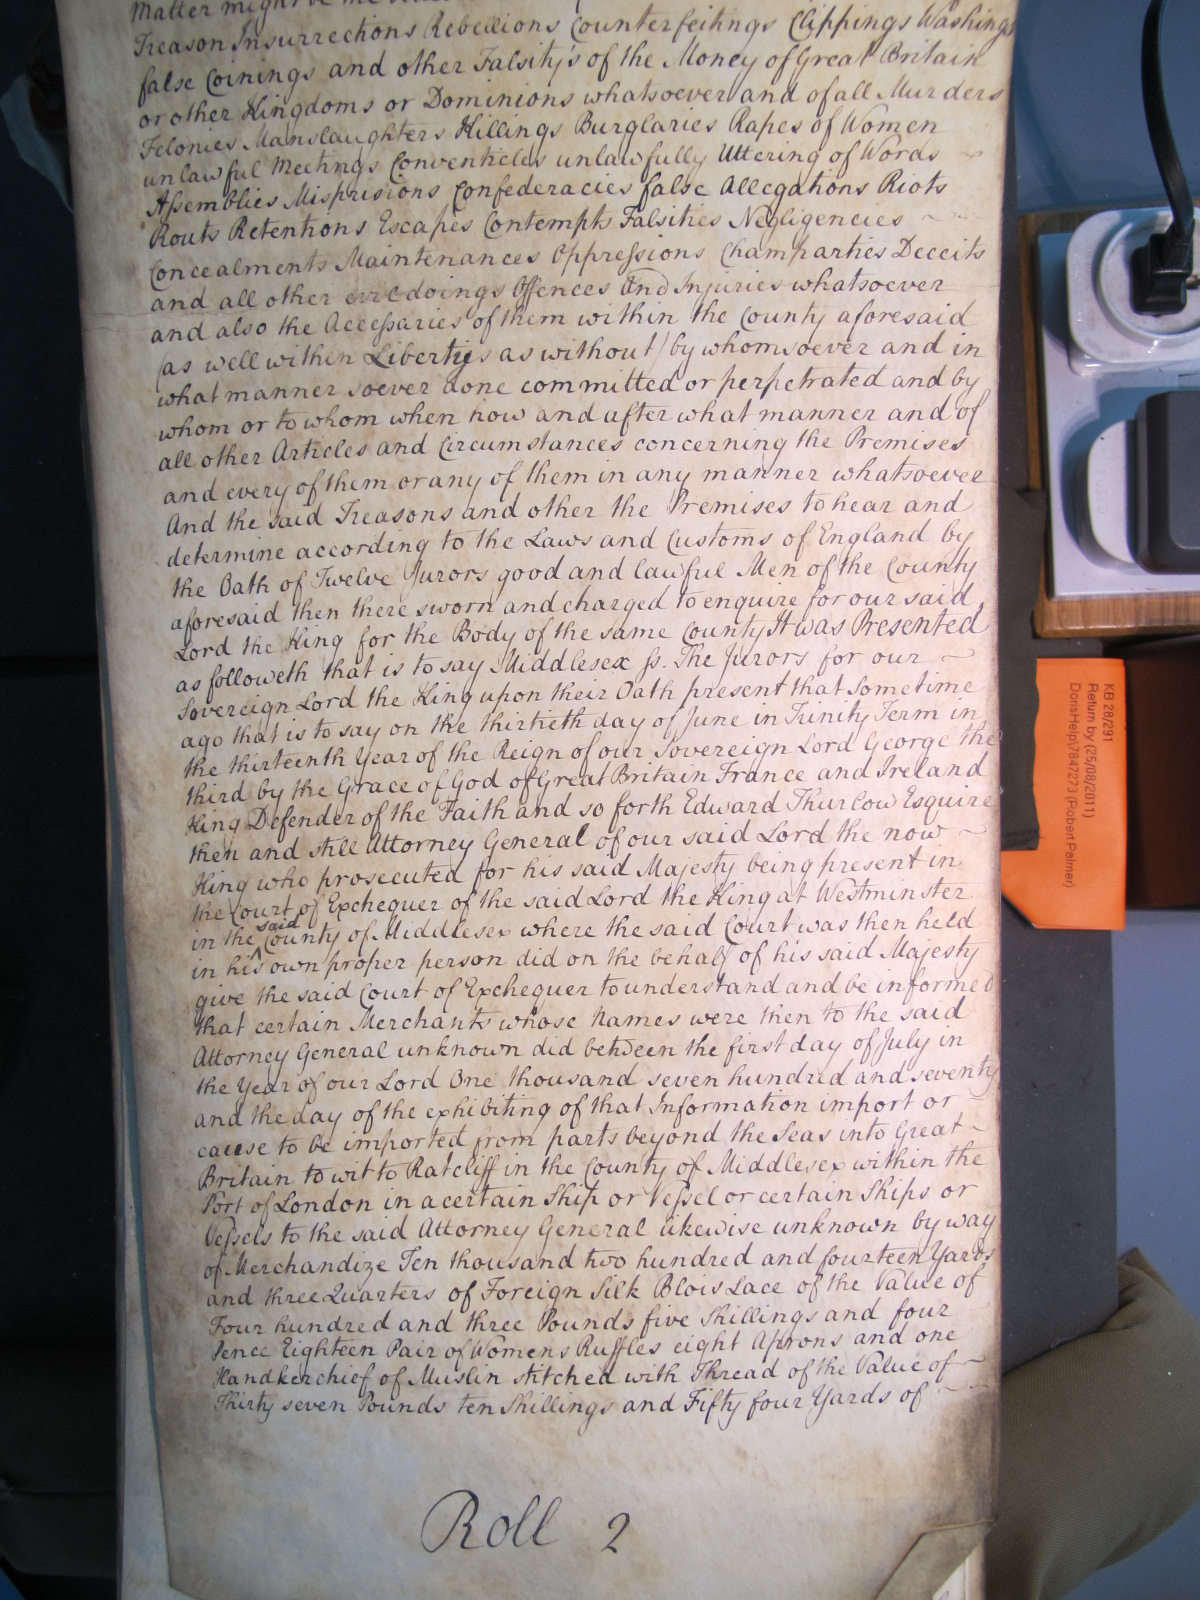 Matter might be
Treason Insurrections Rebellions Counterfeitings Clippings Washings
false Coinings and other Falsity's of the Money of Great Britain
or other Kingdoms or Dominions whatsoever and of all Murders
Felonies Manslaughters Killings Burglaries Rapes of Women
unlawful Meetings Conventicles unlawfully Uttering of Words
Assemblies Misprisions Confederacies false Allegations Riots
Routs Retentions Escapes Contempts Falsities Negligencies
Concealments Maintenances Oppressions Champarties Deceits
and all other evil doings Offences And Injuries whatsoever
and also the Accessaries of them within the County aforesaid
(as well within Liberties as without) by whomsoever and in
what manner soever done committed or perpetrated and by
whom or to whom when how and after what manner and of
all other Articles and Circumstances concerning the Premises
and every of them or any of them in any manner whatsoever
And the said Treasons and other the Premises to hear and
determine according to the Laws and Customs of England by
the Oath of Twelve Jurors good and lawful Men of the County
aforesaid then there sworn and charged to enquire for our said
Lord the King for the Body of the same County It was Presented
as followeth that is to say Middlesex ss. The Jurors for our
Sovereign Lord the King upon their Oath present that Sometime
ago that is to say on the thirtieth day of June in Trinity Term in
the thirteenth Year of the Reign of our Sovereign Lord George the
third by the Grace of God of Great Britain France and Ireland
King Defender of the Faith and so forth Edward Thurlow Esquire
then and still Attorney General of our said Lord the now
King who prosecuted for his said Majesty being present in
the Court of Exchequer of the said Lord the King at Westminster
in the said County of Middlesex where the said Court was then held
in his own proper person did on the behalf of his said Majesty
give the said Court of Exchequer to understand and be informed
that certain Merchants whose Names were then to the said
Attorney General unknown did between the first day of July in
the Year of our Lord One thousand seven hundred and seventy
and the day of the exhibiting of that Information import or
cause to be imported from parts beyond the Seas into Great
Britain to wit to Ratcliff in the County of Middlesex within the
Port of London in a certain Ship or Vessel or certain Ships or
Vessels to the said Attorney General likewise unknown by way
of Merchandize Ten thousand two hundred and fourteen Yards
and three Quarters of Foreign Silk Blois Lace of the Value of
Four hundred and three Pounds five Shillings and four
Pence Eighteen Pair of Womens Ruffles eight Aprons and one
Handkerchief of Muslin stitched with Thread of the Value of
Thirty seven Pounds ten Shillings and Fifty four Yards of
Roll 2
KB 28/291
Return by (25/08/2011)
DorisHelp\7847273 (Robert Palmer)